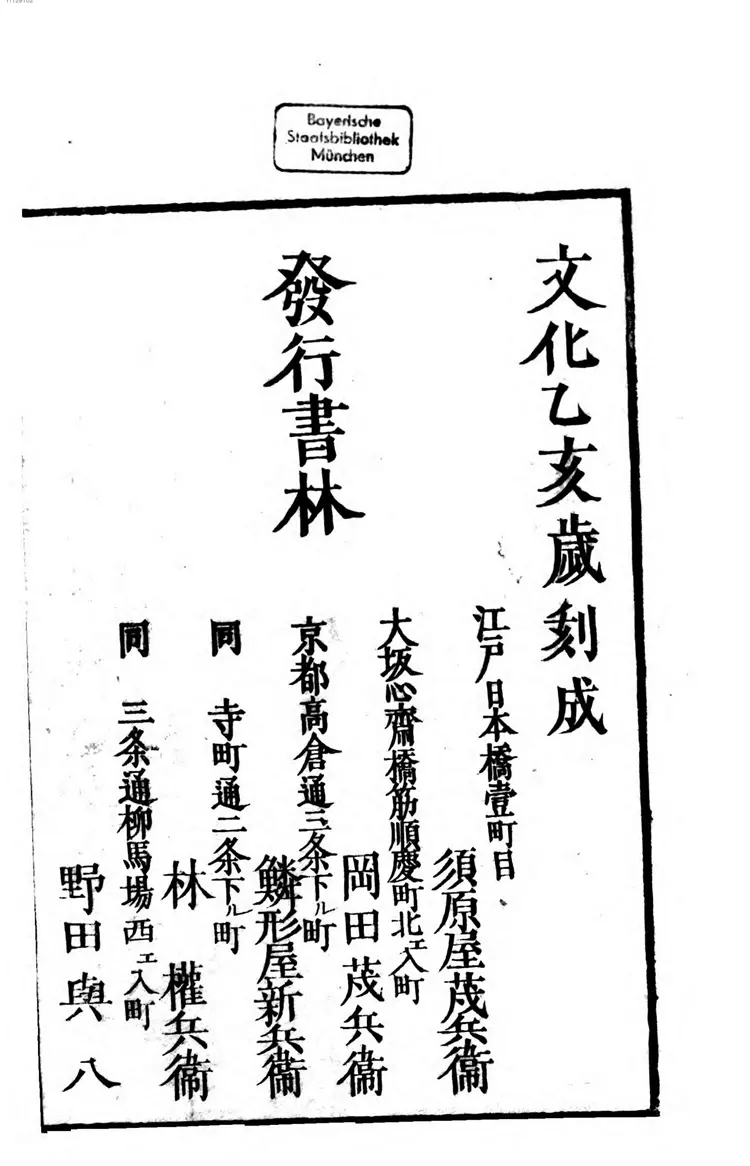 11129102
Bayerische
Staatsbibliothek
München
文化乙亥歲刻成
發行書林
江戸日本橋壹町目
須原屋茂兵衞
大坂心齋橋筋順慶町北エ入町
岡田茂兵衞
京都高倉通三条下ル町
鱗形屋新兵衞
同 寺町通二条下ル町
林 權兵衞
同 三条通柳馬場西エ入町
野田與八